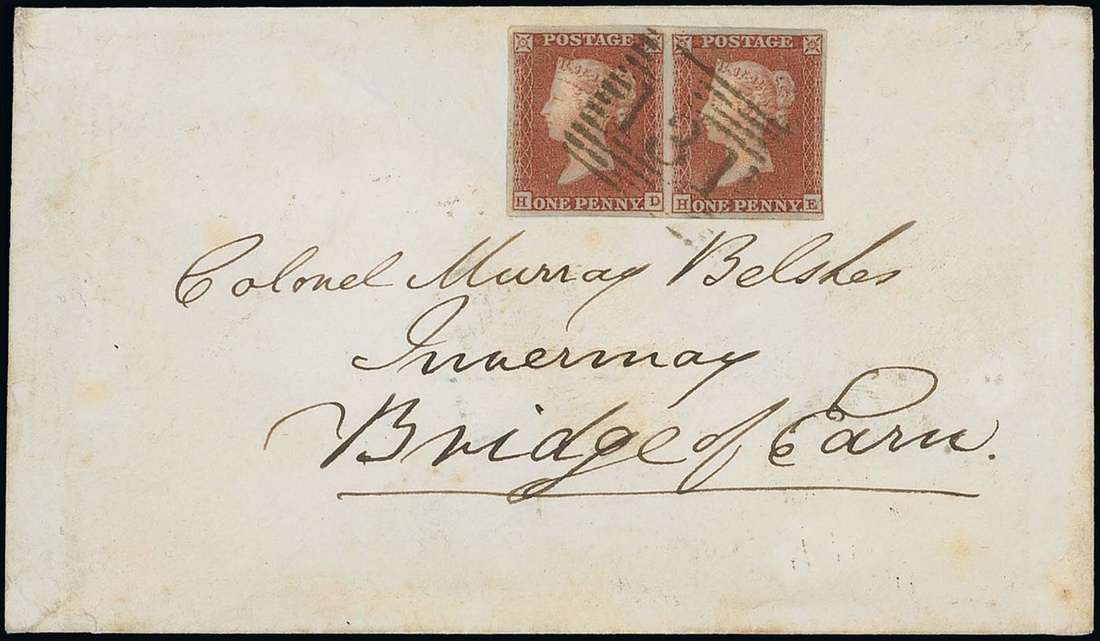 POSTAGE POSTAGE
H ONE PENNY. D H ONE PENNY E
Colonel Murray Belshes
Invermay
Bridge of Earn.